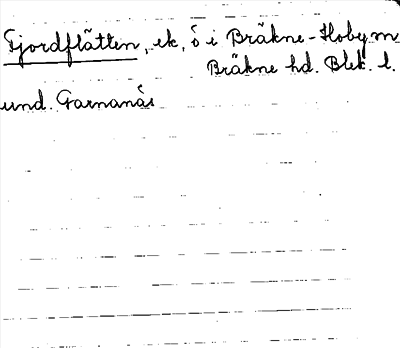 Fjordflätten, ek, ö i Bräkne-Hoby sn
Bräkne hd. Blek. l.
und. Garnanäs